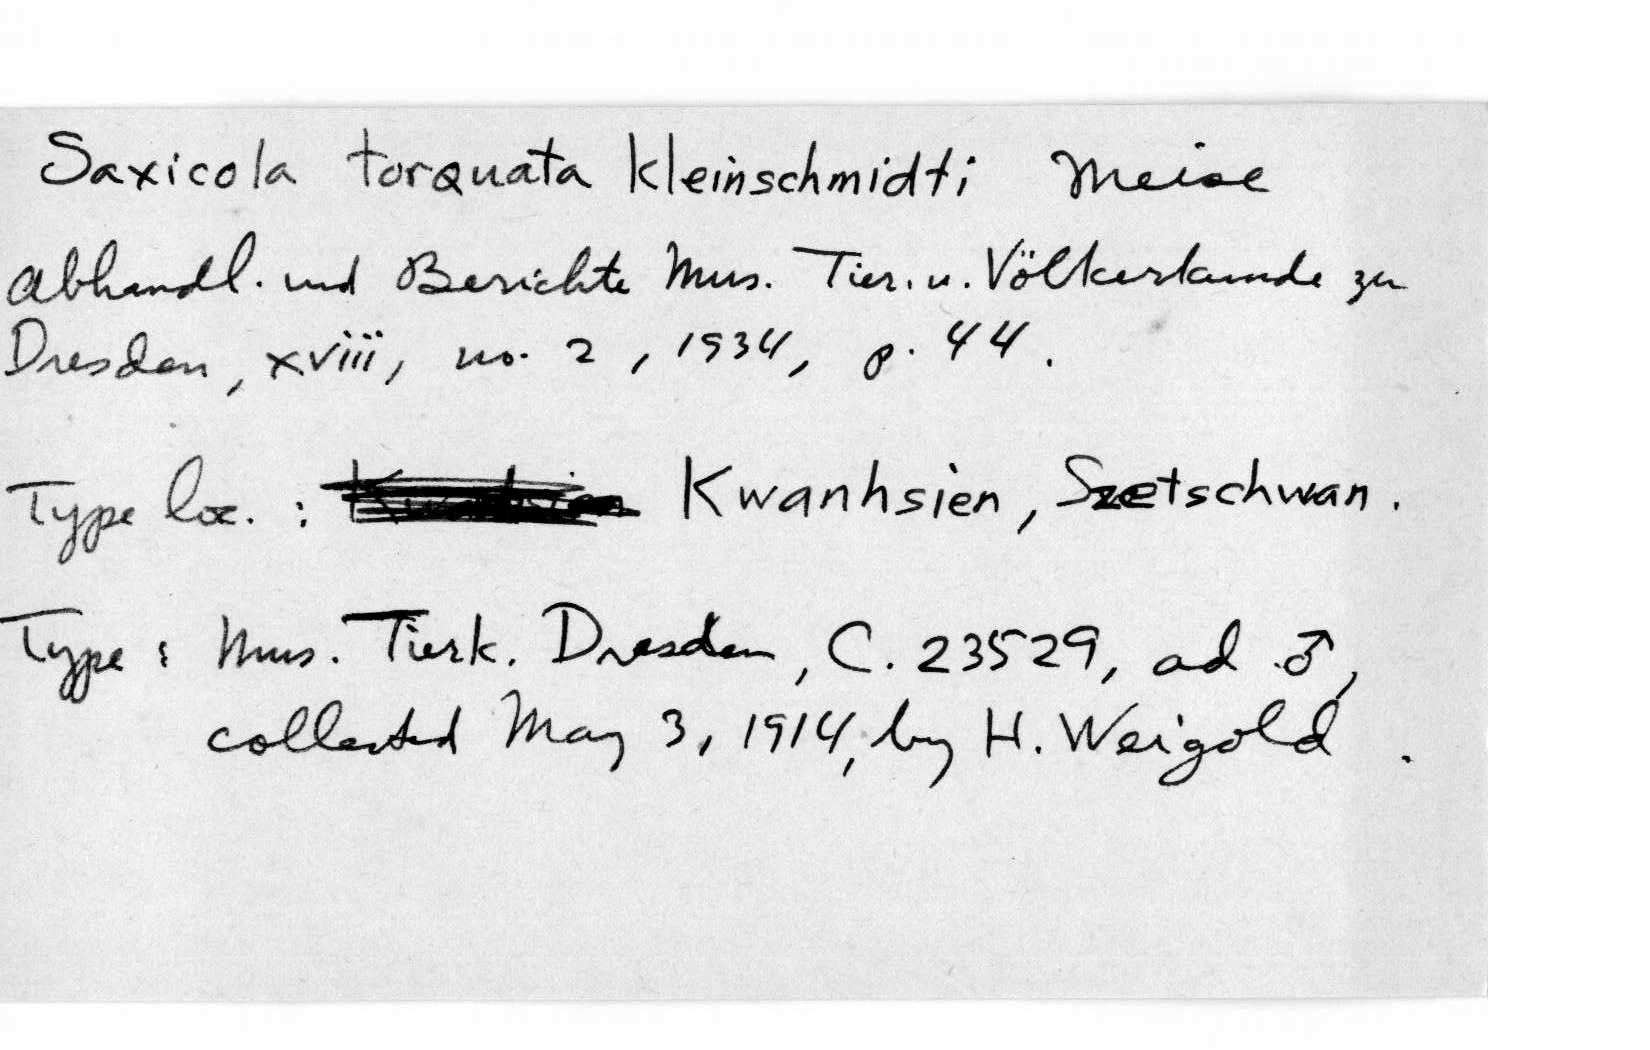 Saxicola torquata kleinschmidti Meise
Abhandl. und Berichte Mus. Tier. u. Völkerkunde zu
Dresden, xviii, no. 2, 1934, p. 44.
Type loc. : Kwanhsien, Szetschwan.
Type : Mus. Tierk. Dresden, C. 23529, ad ♂,
collected May 3, 1914, by H. Weigold.